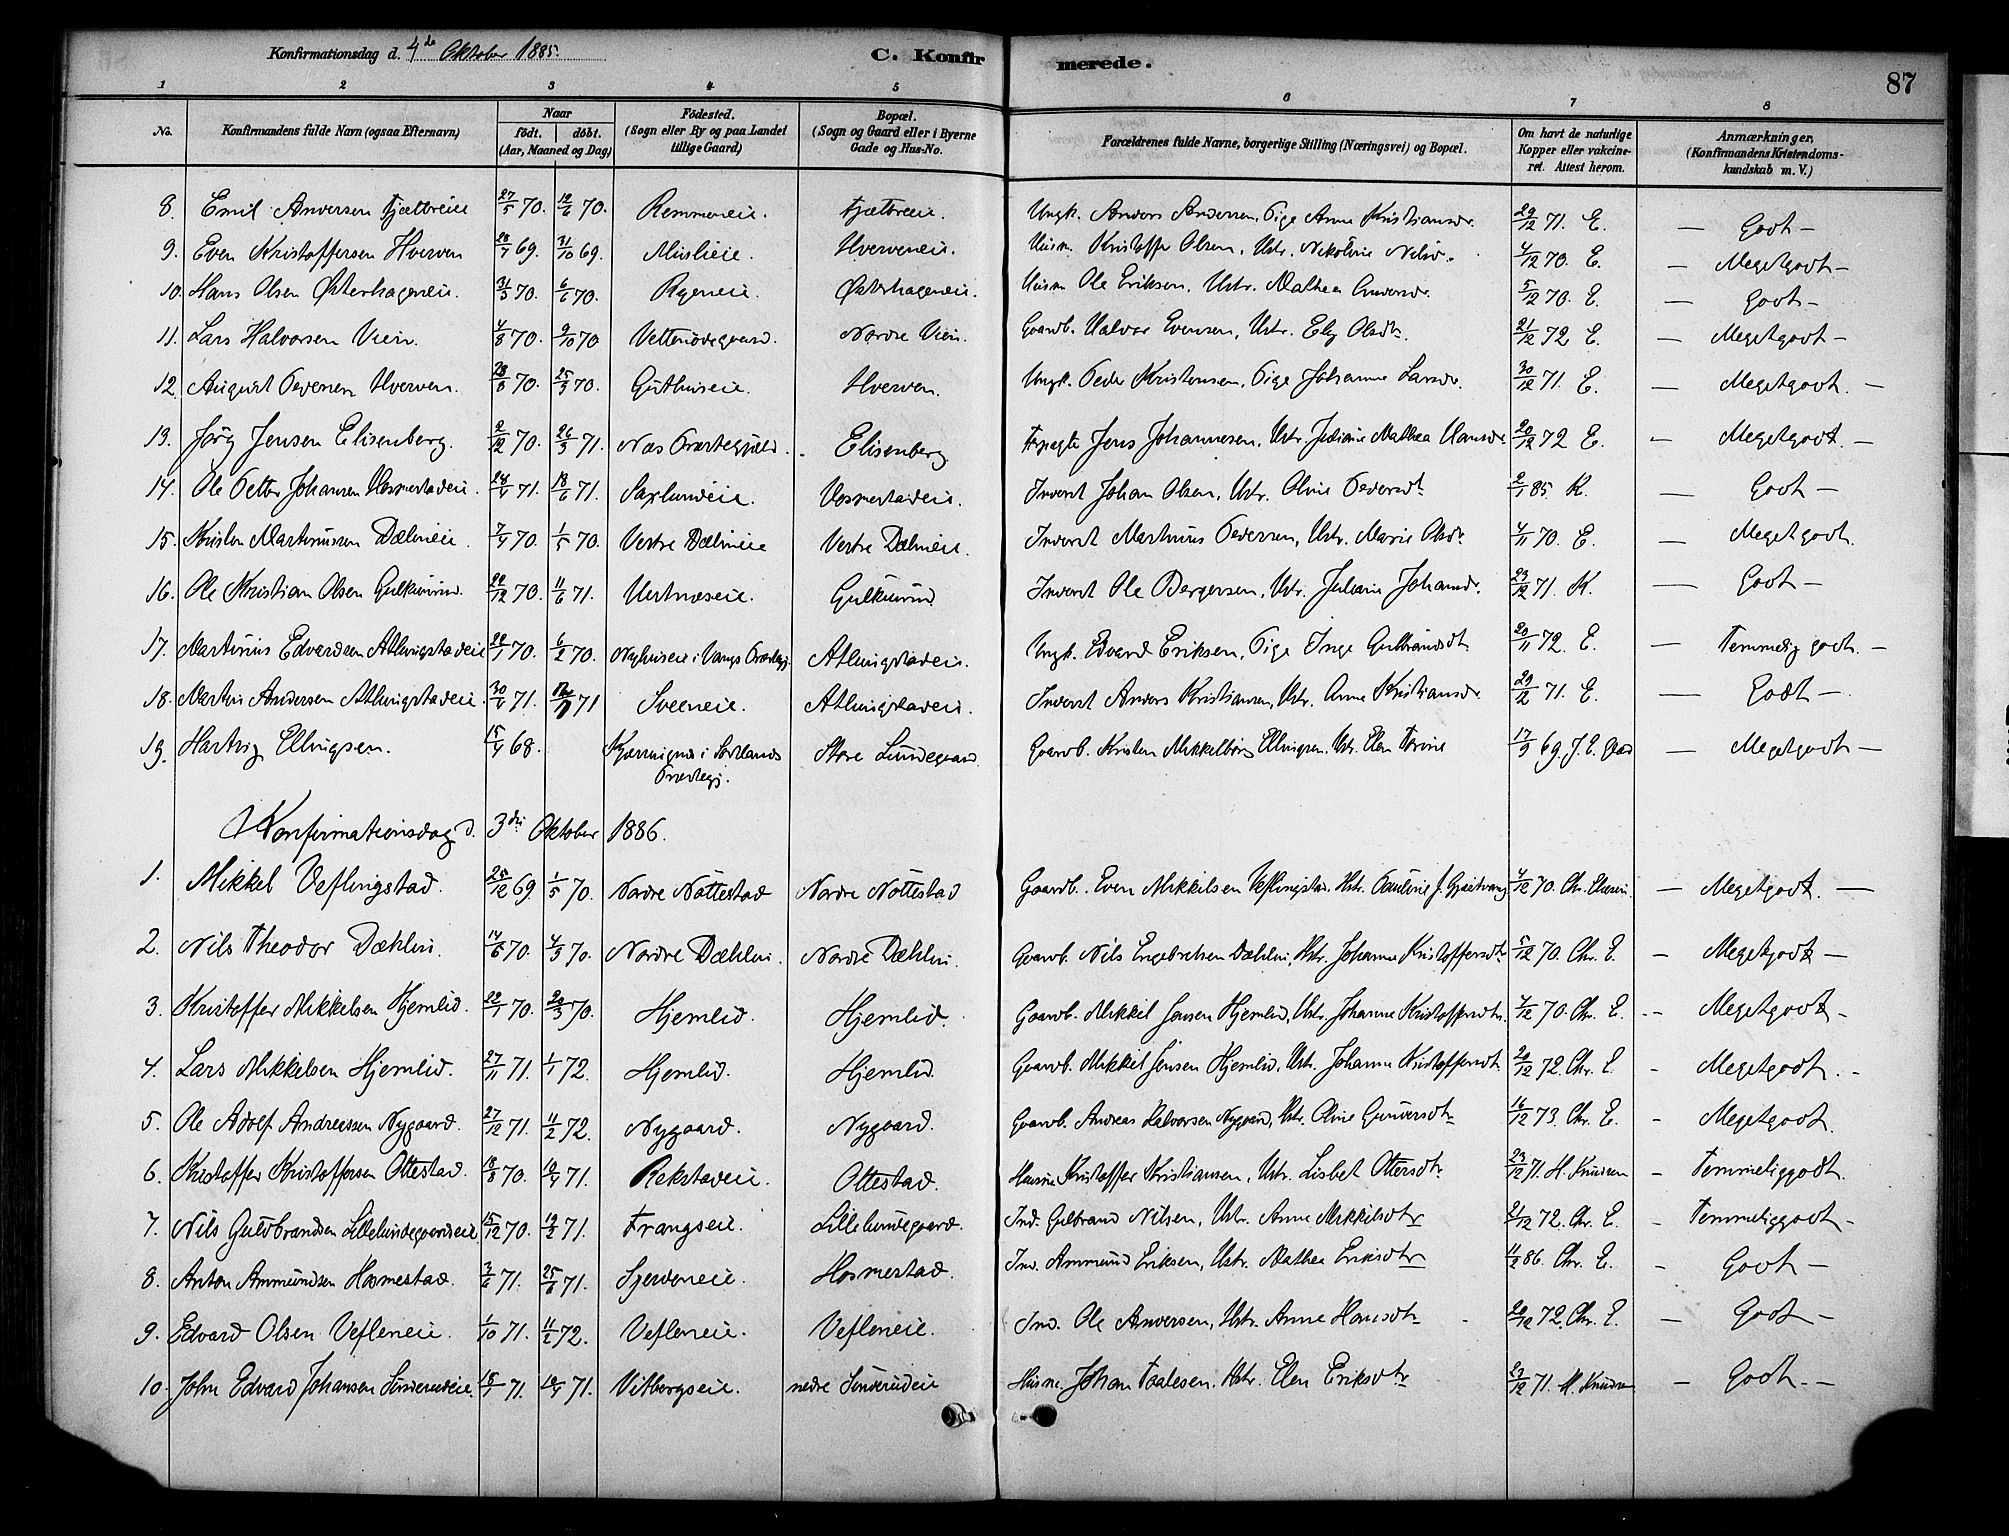 Konfirmationsdag d. 4de Oktober 1885.
C. Konfirmerede.
87
1 2 3 4 5 6 7 8
No. Konfirmandens fulde Navn (ogsaa Efternavn) Naar födt. döbt. (Aar, Maaned og Dag) Födested. (Sogn eller By og paa Landet tillige Gaard) Bopæl. (Sogn og Gaard eller i Byerne Gade og Hus-No. Forældrenes fulde Navne, borgerlige Stilling (Næringsvei) og Bopæl. Om havt de naturlige Kopper eller vakcineret. Attest herom. Anmærkninger, (Konfirmandens Kristendomskundskab m. V.)
8. Emil Andersen Fjætbreie 27/5 70. 12/6 70. Remmeneie. Fjætbreie. Ungk. Anders Andersen, Pige Anne Kristiansdr. 29/12 71. E. — Godt —
9. Even Kristoffersen Hverven 28/7 69. 31/10 69. Mislieie. Hverveneie. Husm. Kristoffer Olsen, Ustr. Nikoline Nilsd. 4/12 70. E. — Megetgodt —
10. Hans Olsen Østerhageneie. 31/3 70. 6/6 70. Ryeneie. Østerhageneie. Husm. Ole Eriksen, Ustr. Mathea Andersdr. 5/12 70. E. — Godt —
11. Lars Halvorsen Vien. 4/8 70. 9/10 70 Nordre Vien. Gaardb. Halvor Evensen, Ustr. Eli Olsdtr. 21/12 72 E. — Megetgodt —
12. August Pedersen Hverven. 70. 25/3 70. Guthuseie. Hverven. Ungk. Peder Kristensen, Pige Johanne Larsdr. 30/12 71 E. — Megetgodt —
13. Jørg Jensen Elisenberg. 2/12 70. 26/3 71. Næs Præstegjeld. Elisenberg Forpagter Jens Johannesen, Ustr Juliane Mathea Hansdr. 20/12 72 E. — Megetgodt. —
14. Ole Petter Johansen Hosmestadeie. 24/4 71. 18/6 71. Saxlundeie. Hosmestadeie. Inderst Johan Olsen, Ustr. Oline Pedersdt. 2/1 85. K. — Godt —
15. Kristen Martinussen Dælineie. 7/4 70. 1/5 70. Vestre Dælineie Vestre Dælineie. Inderst Martinus Pedersen, Ustr. Marie Olsdr. 4/11 70. E. — Megetgodt.
16. Ole Kristian Olsen Gulkuurud. 22/12 70. 11/6 71. Vestnæseie. Gulkuurud Inderst Ole Bergersen, Ustr. Juliane Johansd. 23/12 71. K. — Godt —
17. Martinus Edvardsen Atlungstadeie 22/1 70. 6/2 70. Nyhuseie i Vangs Præstegj. Atlungstadeie. Ungk. Edvard Eriksen, Pige Inge Gulbrandsdt. 20/11 72. E. — Temmelig godt. —
18. Martin Andersen Atlungstadeie. 30/6 71. 71 Sveeneie. Atlungstadeie. Inderst Anders Kristiansen, Ustr. Anne Kristiansdr. 29/12 71. E. — Godt —
19. Hartvig Ellingsen. 15/4 68. Kjærringnes i Sortlands Præstegj. Store Lundegaard. Gaardb. Kristen Mikkelborg Ellingsen, Ustr. Elen Torine 17/9 69. — Megetgodt —
Konfirmationsdag d. 3die Oktober 1886.
1. Mikkel Veflingstad. 25/12 69. 1/5 70. Nordre Nøttestad Nordre Nøttestad Gaardb. Even Mikkelsen Veflingstad. Ustr. Pauline J. Gjæstvang 4/12 70. Chr. — Megetgodt. —
2. Nils Theodor Dæhlin. 14/6 70. 4/9 70. Nordre Dæhlin. Nordre Dæhlin. Gaardb. Nils Engebretsen Dæhlin, Ustr. Johanne Kristoffersdtr 5/12 70. Chr. E. — Megetgodt —
3. Kristoffer Mikkelsen Hjemlid. 22/1 70. 20/3 70. Hjemlid. Hjemlid. Gaardb. Mikkel Jensen Hjemlid, Ustr. Johanne Kristoffersdtr. 4/12 70. Chr. E. — Megetgodt —
4. Lars Mikkelsen Hjemlid. 27/11 71. 1/1 72. Hjemlid. Hjemlid. Gaardb. Mikkel Jensen Hjemlid, Ustr. Johanne Kristoffersdt. 20/12 72. Chr. E. — Megetgodt. —
5. Ole Adolf Andreassen Nygaard. 27/12 71. 11/2 72. Nygaard. Nygaard. Gaardb. Andreas Halvorsen Nygaard, Ustr. Oline Gunersdtr. 16/12 73. Chr. E. — Megetgodt.
6. Kristoffer Kristoffersen Ottestad. 18/8 70. 10/4 71. Rekstadeie. Ottestad. Husm. Kristoffer Kristiansen, Ustr. Lisbet Ottersdtr. 23/12 71. H. Knudsen — Temmeliggodt.
7. Nils Guldbrandsen Lillelundegaardseie 15/12 70. 19/2 71. Frangseie. Lillelundegaard. Ind. Gulbrand Nilsen, Ustr. Anne Mikkelsdtr 21/12 72. Chr. E. — Temmeliggodt —
8. Anton Ammundsen Hosmestad. 3/6 71. 25/6 71. Hosmestad. Ind. Ammund Eriksen, Ustr. Mathea Eriksdtr 11/2 86. Chr. E. — Godt —
9. Edvard Olsen Vefleneie. 1/10 71. 11/2 72. Vefleneie. Vefleneie. Ind. Ole Andersen, Ustr. Anne Hansdtr. 20/12 72. Chr. E. — Godt —
10. John Edvard Johansen Sønderudeie. 15/1 71. 10/4 71. Vitborgseie. nedre Sønderudeie Husm. Johan Taalesen. Ustr. Elen Eriksdtr. 23/12 71. H. Knudsen — Godt. —